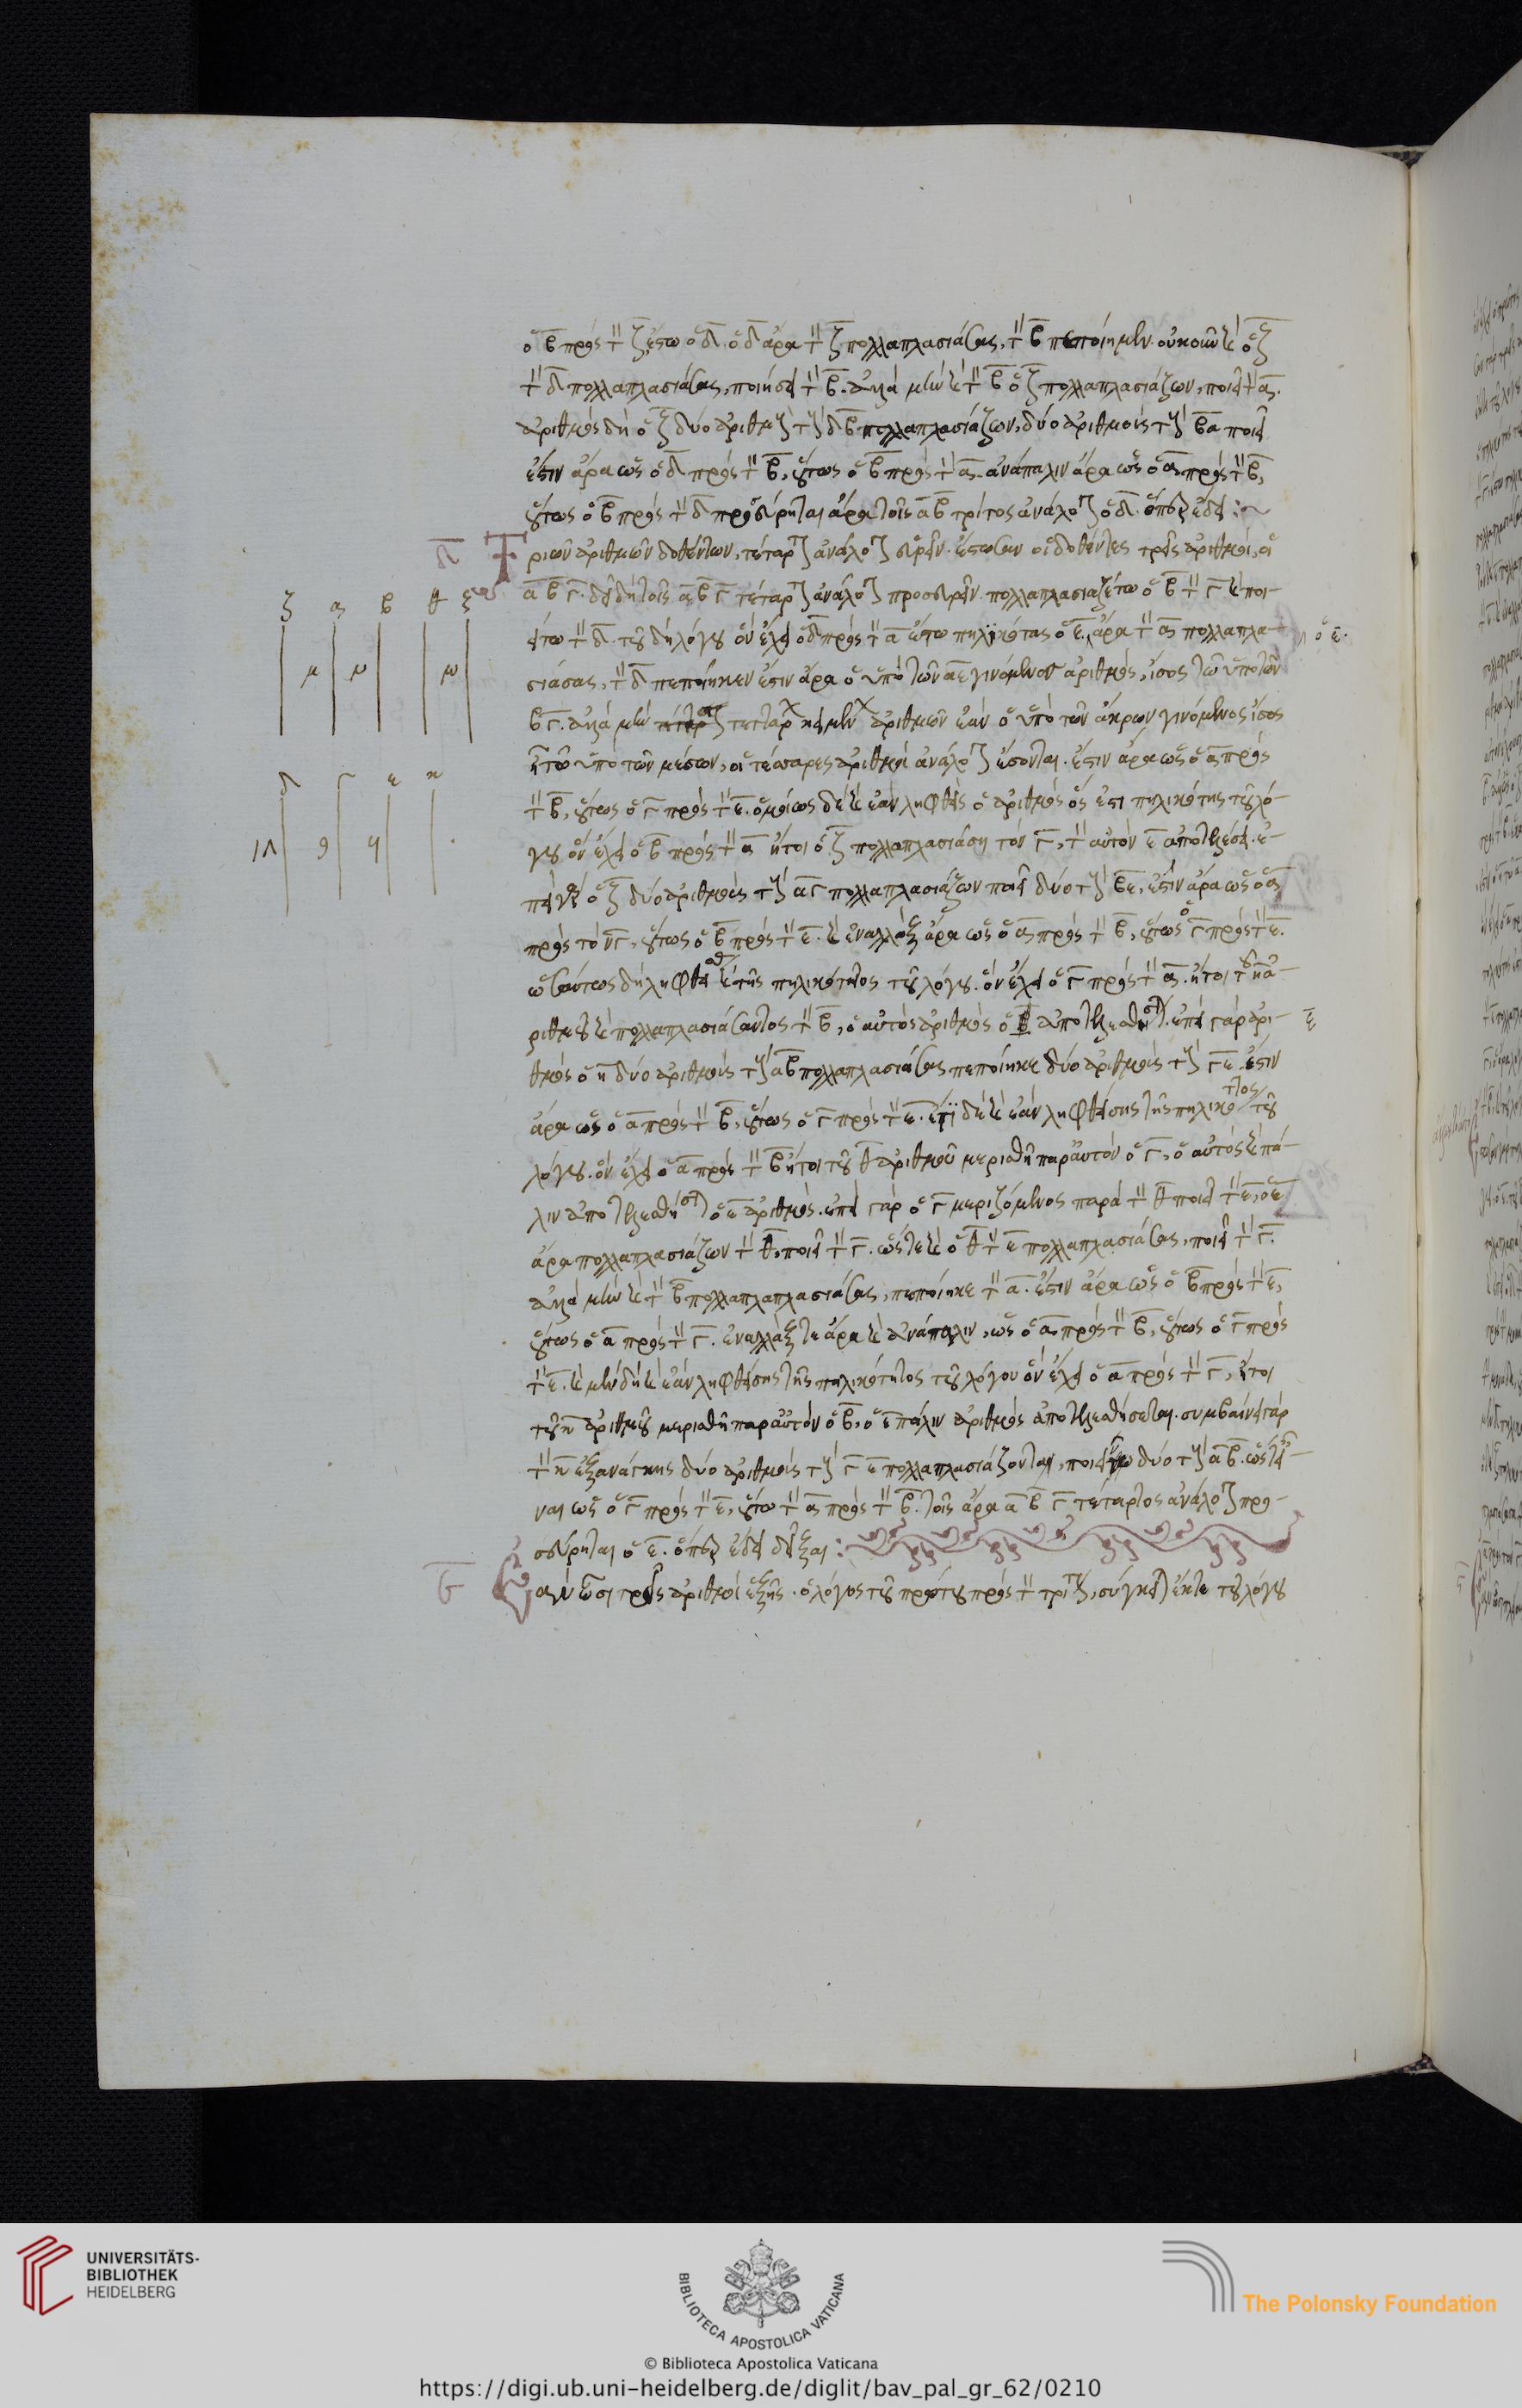 ὁ β̅ πρὸς τὸν ζ̅ ἔστω ὁ δ̅. ὁ δ̅ ἄρα τὸν ζ̅ πολλαπλασιάσας, τὸν β̅ πεποίηκεν. οὐκοῦν καὶ ὁ ζ̅
τὸν δ̅ πολλαπλασιάσας, ποιήσει τὸν β̅. ἀλλὰ μὴν καὶ τὸν β̅ ὁ ζ̅ πολλαπλασιάζων, ποιεῖ τὸν α̅.
ἀριθμὸς δὴ ὁ ζ̅ δύο ἀριθμοὺς τοὺς δ̅ β̅ πολλαπλασιάζων, δύο ἀριθμοὺς τοὺς β̅ α̅ ποιεῖ
ἔστιν ἄρα ὡς ὁ δ̅ πρὸς τὸν β̅, οὕτως ὁ β̅ πρὸς τὸν α̅. ἀνάπαλιν ἄρα ὡς ὁ α̅ πρὸς τὸν β̅,
οὕτως ὁ β̅ πρὸς τὸν δ̅ προσεύρηται ἄρα τοῖς α̅ β̅ τρίτος ἀνάλογον ὁ δ̅. ὅπερ ἔδει :~
δ̅ Τριῶν ἀριθμῶν δοθέντων, τέταρτον ἀνάλογον εὑρεῖν. ἔστωσαν οἱ δοθέντες τρεῖς ἀριθμοί, οἱ
α̅ β̅ γ̅. δεῖ δὴ τοῖς α̅ β̅ γ̅ τέταρτον ἀνάλογον προσευρεῖν. πολλαπλασιαζέτω ὁ β̅ τὸν γ̅ καὶ ποι-
είτω τὸν δ̅. τοῦ δὴ λόγου ὃν ἔχει ὁ δ̅ πρὸς τὸν α̅ ἔστω πηλικότης ὁ ε̅. ἄρα τὸν α̅ πολλαπλα-
ὁ ε̅.
σιάσας, τὸν δ̅ πεποίηκεν ἔστιν ἄρα ὁ ὑπὸ τῶν α̅ ε̅ γινόμενος ἀριθμὸς, ἴσος τῶ ὑπὸ τῶν
β̅ γ̅. ἀλλὰ μὴν ἀριθμῶν ἐὰν ὁ ὑπὸ τῶν ἄκρων γινόμενος ἴσος
τῶ ὑπὸ τῶν μέσων, οἱ τέσσαρες ἀριθμοὶ ἀνάλογον ἔσονται. ἔστιν ἄρα ὡς ὁ α̅ πρὸς
τὸν β̅, οὕτως ὁ γ̅ πρὸς τὸν ε̅. ὁμοίως δὲ καὶ ἐὰν ληφθεὶς ὁ ἀριθμὸς ὅς ἐστι πηλικότης τοῦ λό-
γου ὃν ἔχει ὁ β̅ πρὸς τὸν α̅ ἤτοι ὁ ζ̅ πολλαπλασιάση τὸν γ̅, τὸν αὐτὸν ε̅ ἀποτελέσει. ἐ-
πεὶ γὰρ ὁ ζ̅ δύο ἀριθμοὺς τοὺς α̅ γ̅ πολλαπλασιάζων ποιεῖ δύο τοὺς β̅ ε̅, ἔστιν ἄρα ὡς ὁ α̅
πρὸς τὸν γ̅, οὕτως ὁ β̅ πρὸς τὸν ε̅. καὶ ἐναλλὰξ ἄρα ὡς ὁ α̅ πρὸς τὸν β̅, οὕτως ὁ γ̅ πρὸς τὸν ε̅.
ὡσαύτως δὴ καὶ τῆς πηλικότητος τοῦ λόγου. ὃν ἔχει ὁ γ̅ πρὸς τὸν α̅. ἤτοι τοῦ η̅ ἀ-
ριθμοῦ καὶ πολλαπλασιάσαντος τὸν β̅, ὁ αὐτὸς ἀριθμὸς ὁ ἀποτελεσθήσεται. ἐπεὶ γὰρ ἀρι-
ε̅
θμὸς ὁ η̅ δύο ἀριθμοὺς τοὺς α̅ β̅ πολλαπλασιάσας πεποίηκε δύο ἀριθμοὺς τοὺς γ̅ ε̅. ἔστιν
ἄρα ὡς ὁ α̅ πρὸς τὸν β̅, οὕτως ὁ γ̅ πρὸς τὸν ε̅. ἔτι δὲ καὶ ἐὰν ληφθείσης τῆς πηλικότητος τοῦ
λόγου. ὃν ἔχει ὁ α̅ πρὸς τὸν β̅ ἤτοι τοῦ θ̅ ἀριθμοῦ μερισθῆ παρ' αὐτὸν ὁ γ̅, ὁ αὐτὸς καὶ πά-
λιν ἀποτελεσθήσεται ὁ ε̅ ἀριθμός. ἐπεὶ γὰρ ὁ γ̅ μεριζόμενος παρὰ τὸν θ̅ ποιεῖ τὸν ε̅, ὁ ε̅
ἄρα πολλαπλασιάζων τὸν θ̅, ποιεῖ τὸν γ̅. ὥστε καὶ ὁ θ̅ τὸν ε̅ πολλαπλασιάσας, ποιεῖ τὸν γ̅.
ἀλλὰ μὴν καὶ τὸν β̅ πολλαπλαπλασιάσας, πεποίηκε τὸν α̅. ἔστιν ἄρα ὡς ὁ β̅ πρὸς τὸν ε̅,
οὕτως ὁ α̅ πρὸς τὸν γ̅. ἐναλλάξ τε ἄρα καὶ ἀνάπαλιν, ὡς ὁ α̅ πρὸς τὸν β̅, οὕτως ὁ γ̅ πρὸς
τὸν ε̅. καὶ μὴν δὴ καὶ ἐὰν ληφθείσης τῆς πηλικότητος τοῦ λόγου ὃν ἔχει ὁ α̅ πρὸς τὸν γ̅, ἤτοι
τοῦ η̅ ἀριθμοῦ μερισθῆ παρ' αὐτὸν ὁ β̅, ὁ ε̅ πάλιν ἀριθμὸς ἀποτελεσθήσεται. συμβαίνει γὰρ
τὸν η̅ ἐξανάγκης δύο ἀριθμοὺς τοὺς γ̅ ε̅ πολλαπλασιάζοντα, ποιεῖν δύο τοὺς α̅ β̅. ὥστε εἶ-
ναι ὡς ὁ γ̅ πρὸς τὸν ε̅, οὕτω τὸν α̅ πρὸς τὸν β̅. τοῖς ἄρα α̅ β̅ γ̅ τέταρτος ἀνάλογον προ-
σεύρηται ὁ ε̅. ὅπερ ἔδει δεῖξαι :
ε̅ ἐὰν ὦσι τρεῖς ἀριθμοὶ ἑξῆς. ὁ λόγος τοῦ πρώτου πρὸς τὸν τρίτον, σύγκειται ἔκ τε τοῦ λόγου
ζ α β θ ξ
δ γ ε η
18 9 4
UNIVERSITÄTS-
BIBLIOTHEK
HEIDELBERG
BIBLIOTECA APOSTOLICA VATICANA
The Polonsky Foundation
© Biblioteca Apostolica Vaticana
https://digi.ub.uni-heidelberg.de/diglit/bav_pal_gr_62/0210